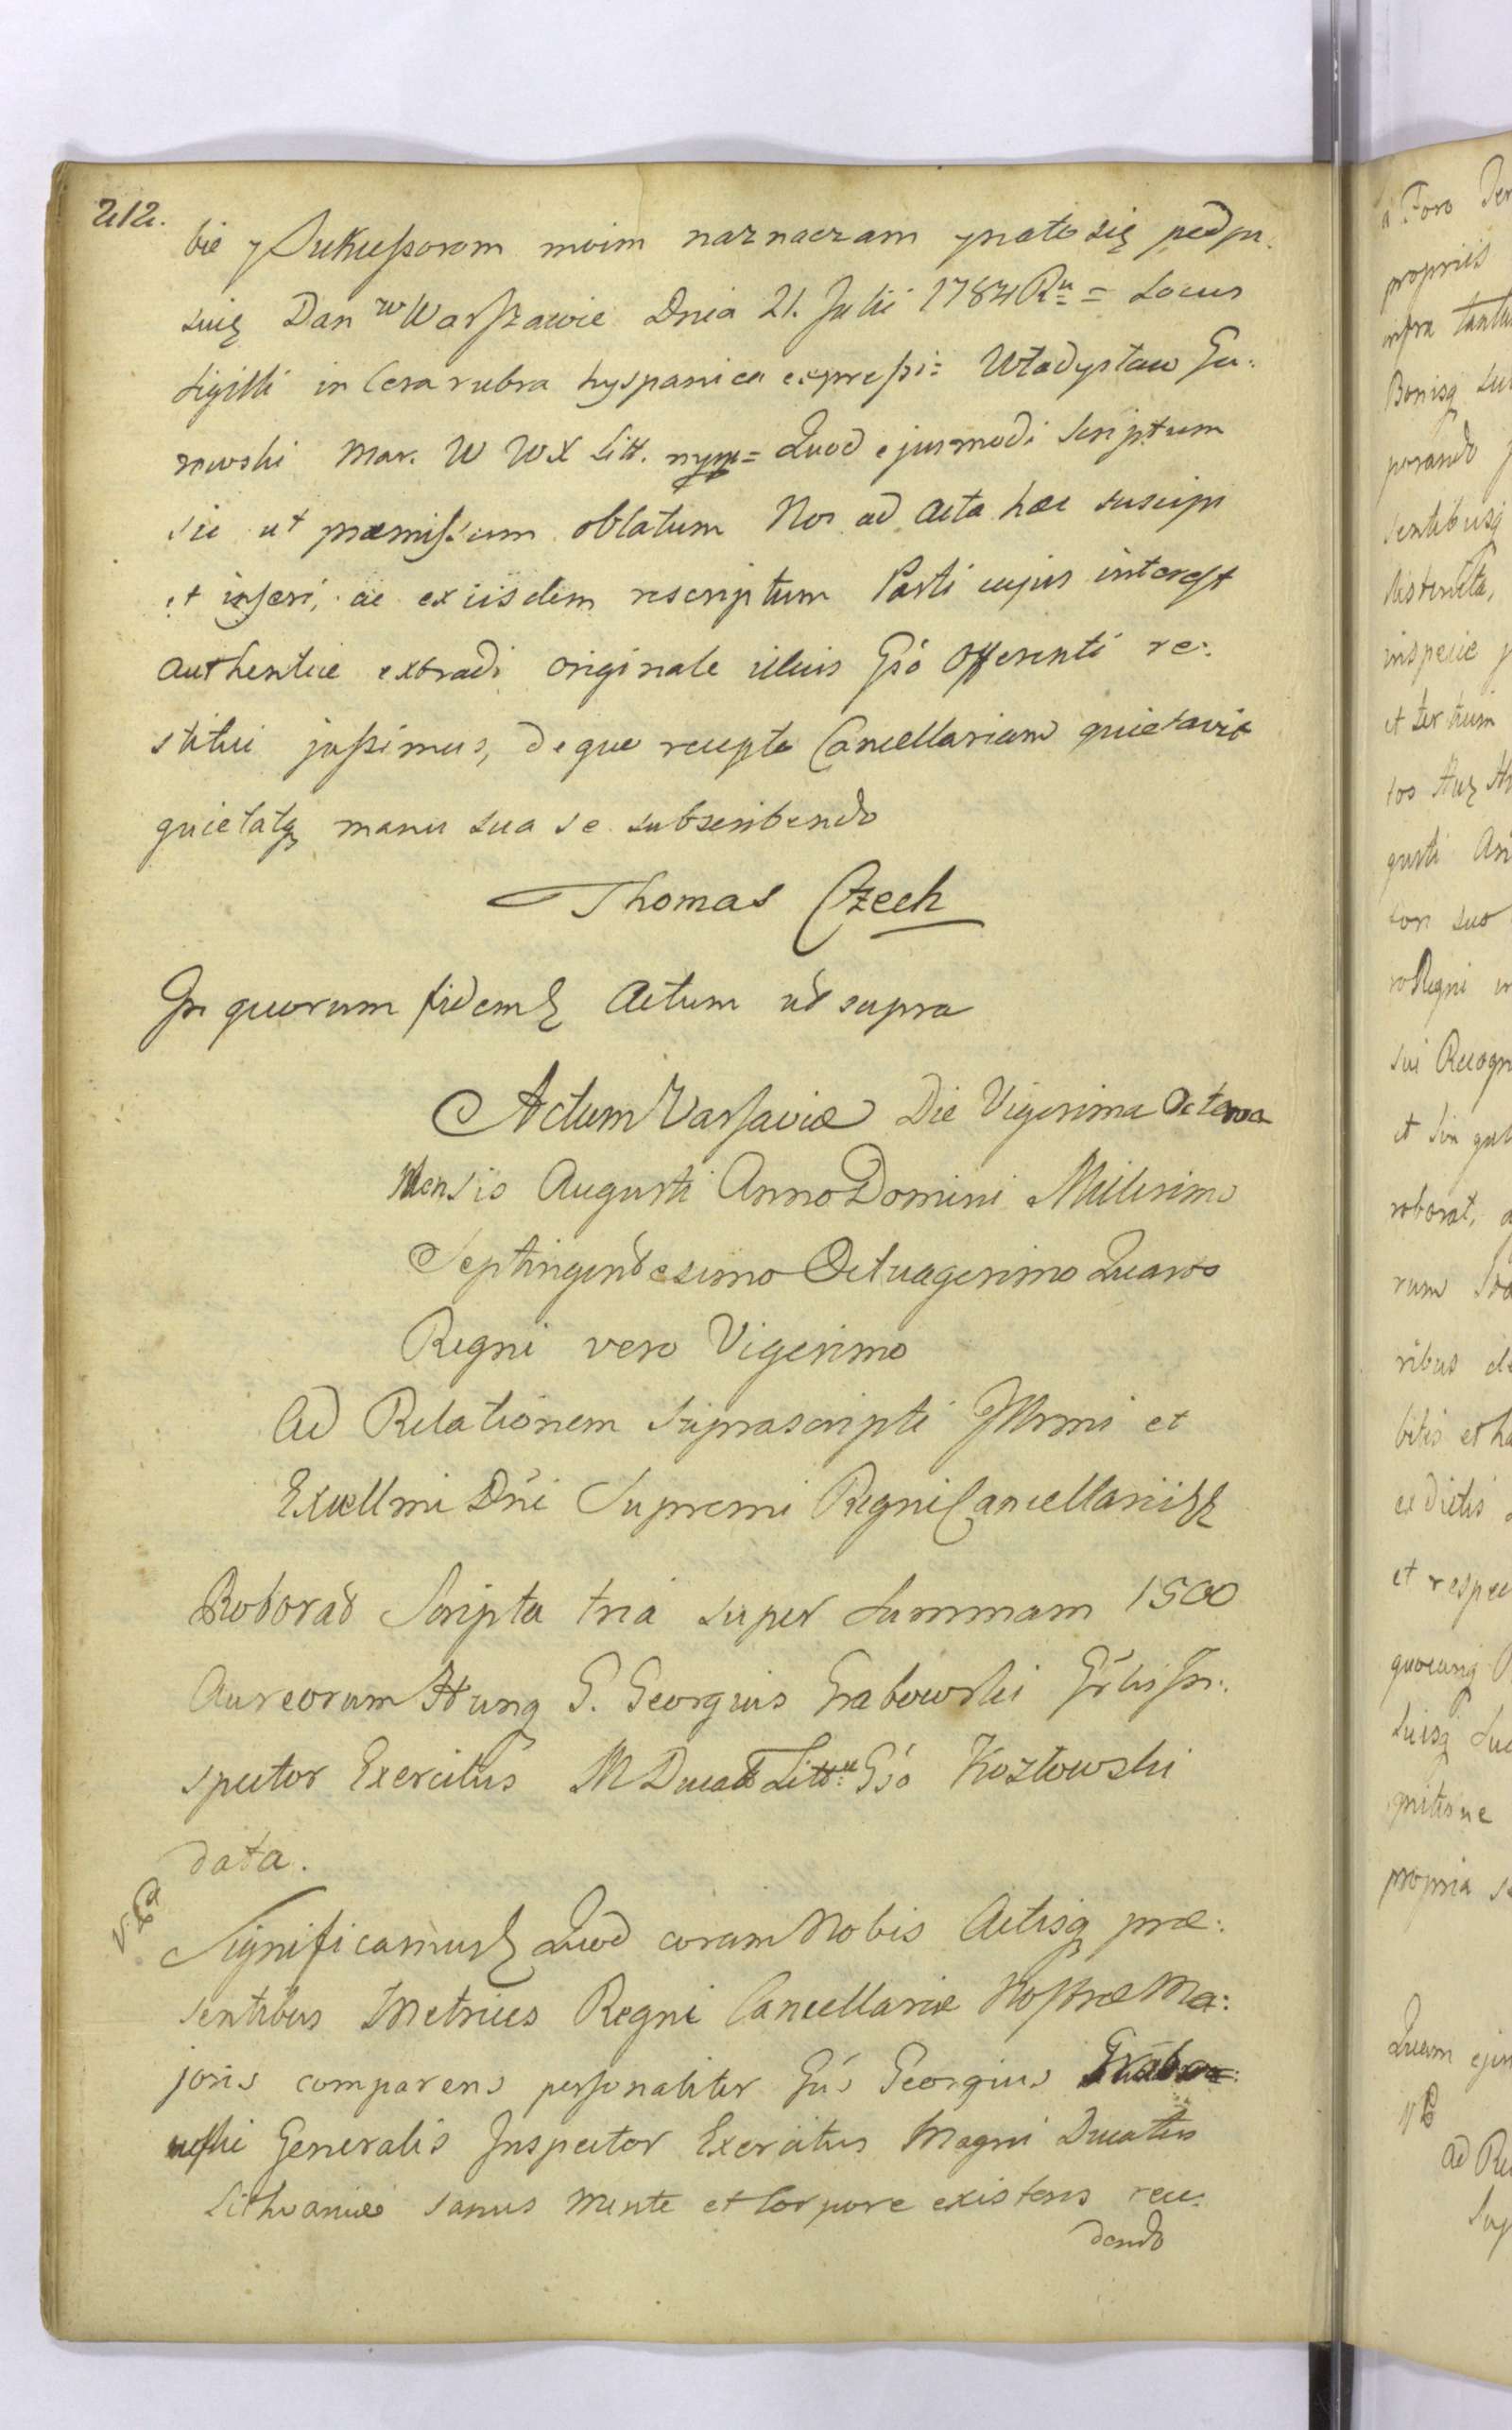 212.
bie y Sukcessorom moim naznaczam y na to się podpi:
suię Dan w Warszawie Dnia 21. Julii 1784 Ru = Locus
Sigilli in Cera rubra hyspanica expressi = Władysław Gu:
rowski Mar. W W X Litt. mpp = Quod ejusmodi scriptum
sic ut præmissum oblatum Nos ad Acta hæc suscipi
et inseri, ac ex iisdem rescriptum Parti cujus interest
authentice extradi originale illius Gso Offerenti re:
stitui jussimus, de quo recepto Cancellariam quietavit
quietatq manu sua se subscribendo
Thomas Czech
In quorum fidem Actum ut supra
Actum Varsaviæ Die Vigesima Octava
Mensis Augusti Anno Domini Millesimo
Septingentesimo Octuagesimo Quarto
Regni vero Vigesimo
Ad Relationem suprascripti Illrmi et
Excellmi Dni Supremi Regni Cancellarii
Roborat Scripta tria super Summam 1500
Aureorum Hung G. Georgius Grabowski Grlis In:
spector Exercitus M Ducat Litt Gso Kozłowski
data.
Significamus Quod coram Nobis Actisq præ:
sentibus Metrices Regni Cancellariæ Nostræ Ma:
joris comparens personaliter Gus Georgius Grabo:
wski Generalis Inspector Exercitus Magni Ducatus
Lithvaniæ sanus mente et Corpore existens rece:
dendo
a Foro
propriis
infra
Bonisq
porando
sentibusq
inspecie
et tertium
gusti
suo
Regni
sui Recogn
et sin
roborat,
rum
ribus
bitis et
ex dictis
et respec
quocunq
suisq
propria
Quam ejus